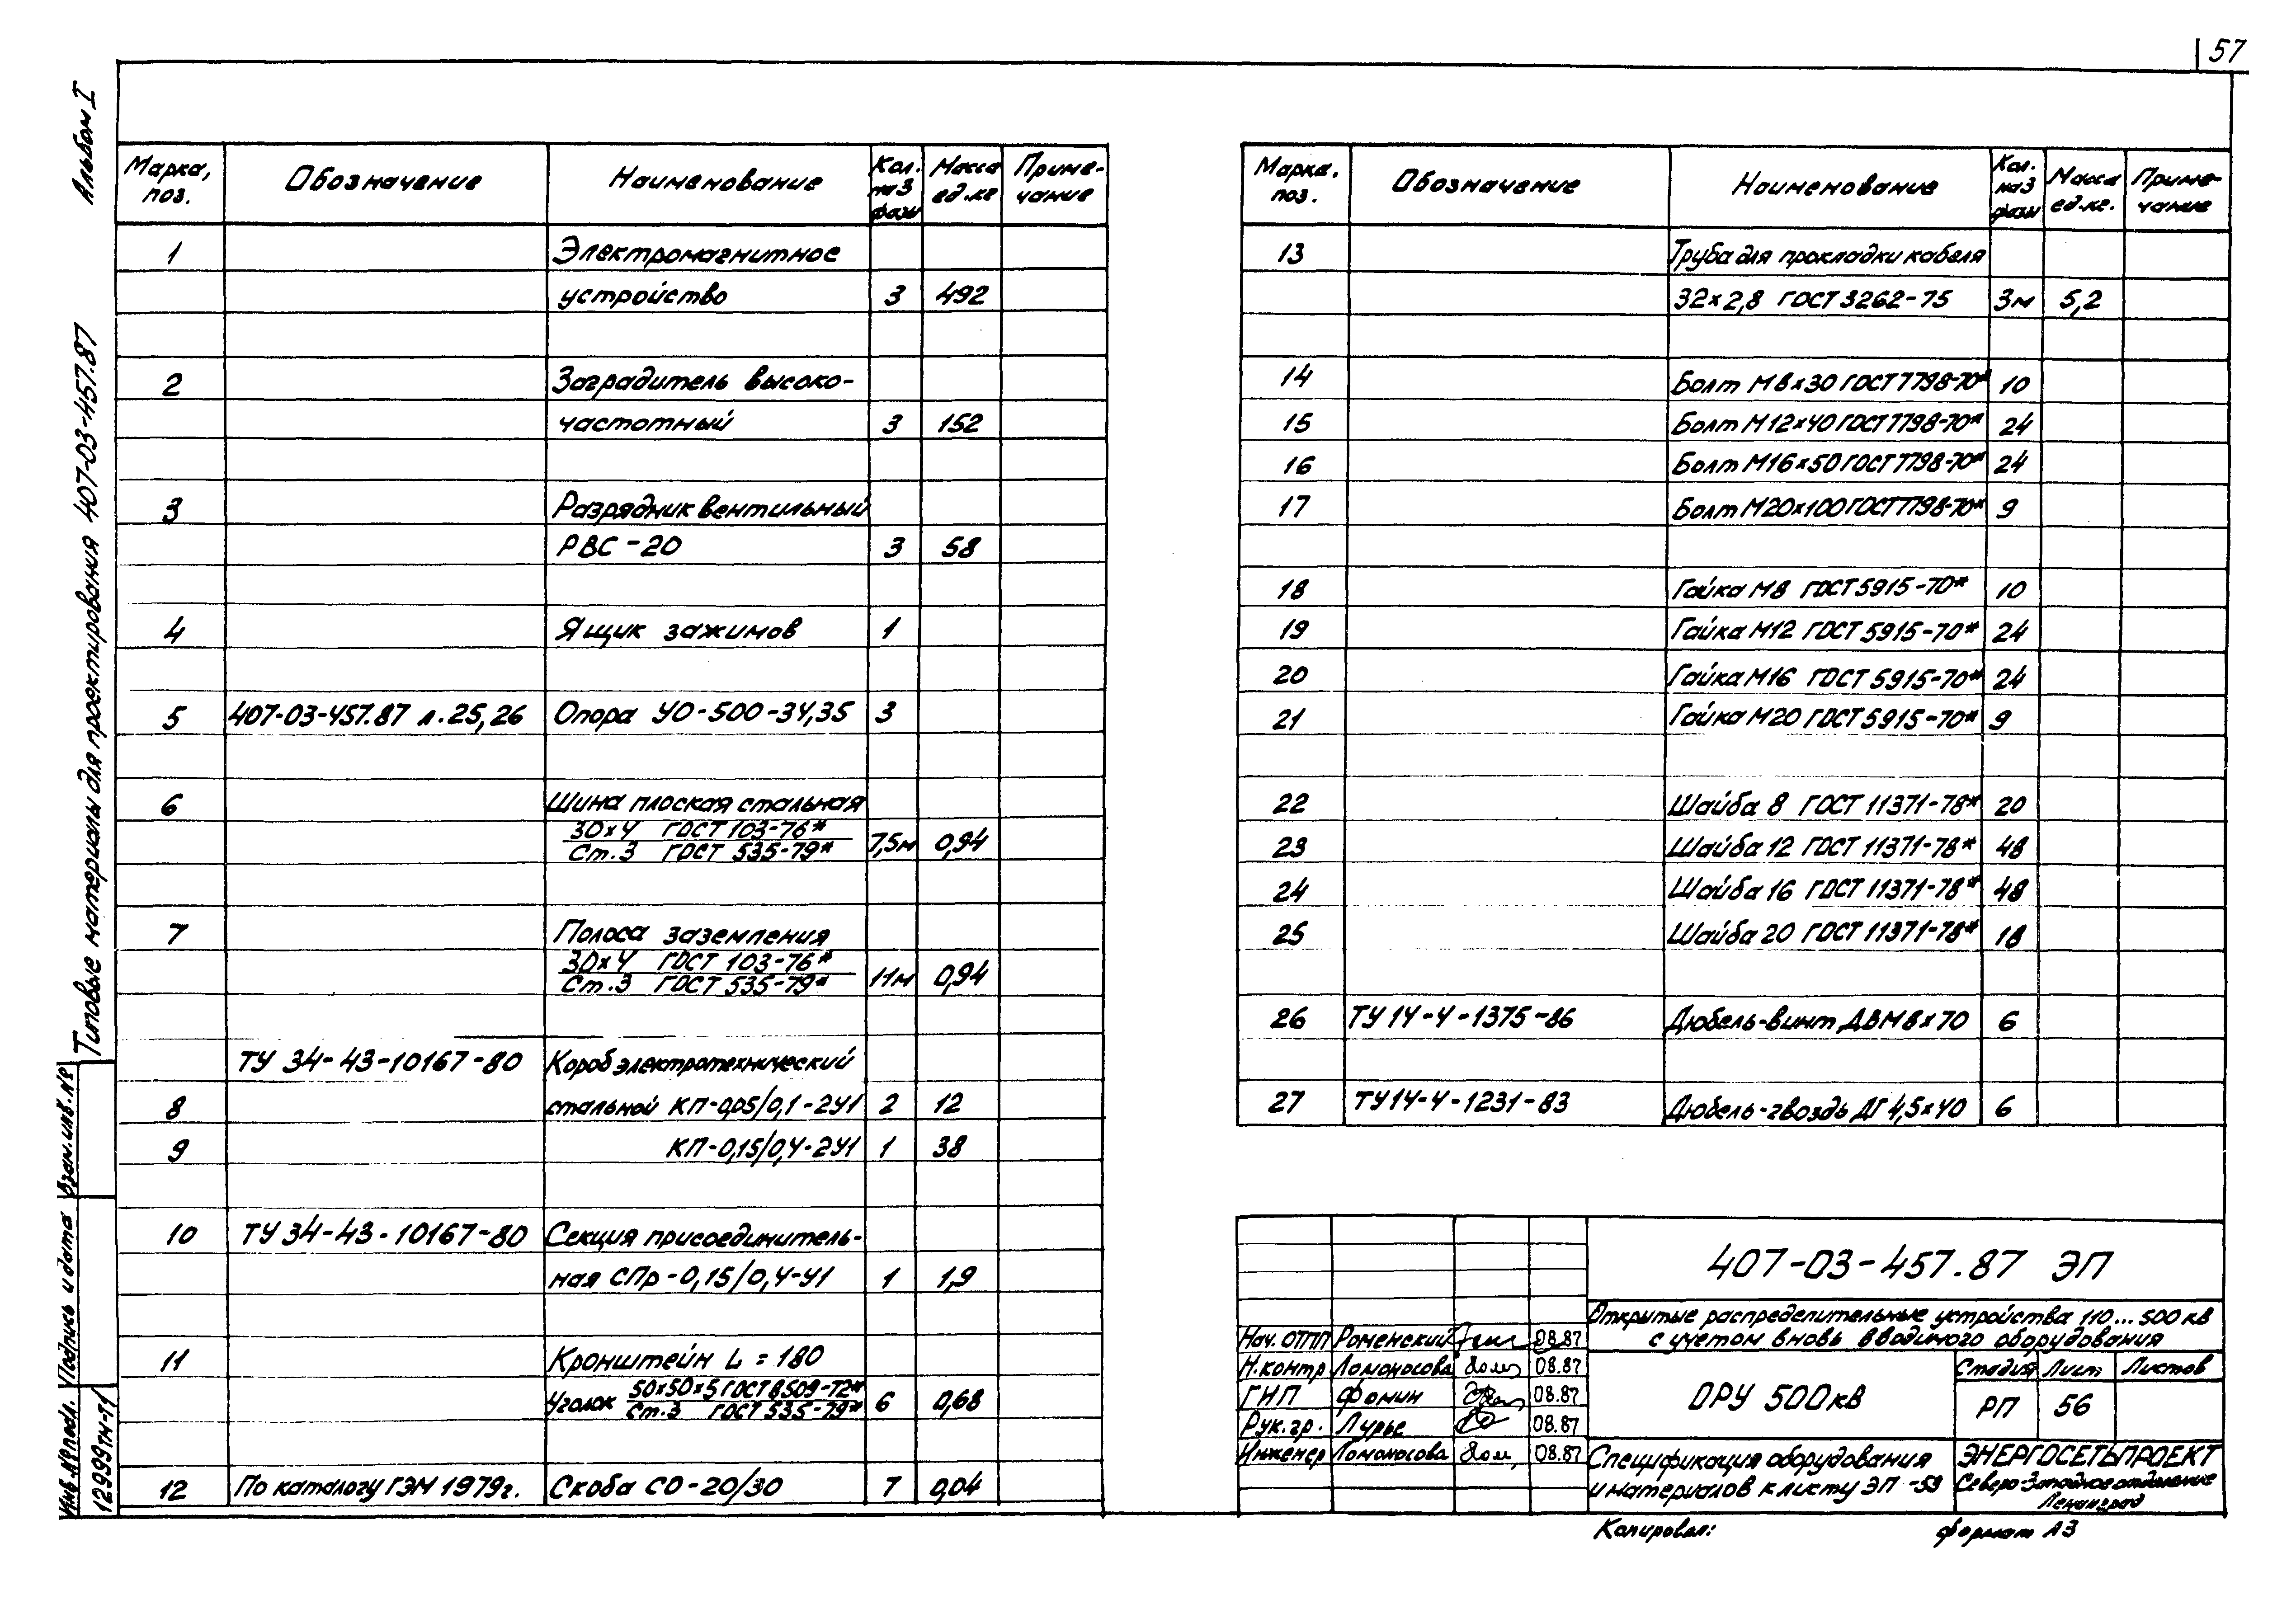 57
Альбом I
Типовые материалы для проектирования 407-03-457.87
Взам.инв.№
Подпись и дата
Инв.№ подл.
12999тм-т1
Марка, поз. Обозначение Наименование Кол. на 3 фазы Масса ед.кг Приме-чание
1 Электромагнитное
устройство 3 492
2 Заградитель высоко-
частотный 3 152
3 Разрядник вентильный
РВС-20 3 58
4 Ящик зажимов 1
5 407-03-457.87 л.25,26 Опора УО-500-34,35 3
6 Шина плоская стальная
30х4 ГОСТ 103-76*
Ст.3 ГОСТ 535-79* 7,5м 0,94
7 Полоса заземления
30х4 ГОСТ 103-76*
Ст.3 ГОСТ 535-79* 11м 0,94
ТУ 34-43-10167-80 Короб электротехнический
8 стальной КП-0,05/0,1-2У1 2 12
9 КП-0,15/0,4-2У1 1 38
10 ТУ 34-43-10167-80 Секция присоединитель-
ная СПр-0,15/0,4-У1 1 1,9
11 Кронштейн L=180
Уголок 50х50х5 ГОСТ 8509-72*
Ст.3 ГОСТ 535-79* 6 0,68
12 По каталогу ГЭМ 1979г. Скоба СО-20/30 7 0,04
Марка, поз. Обозначение Наименование Кол. на 3 фазы Масса ед.кг. Приме-чание
13 Труба для прокладки кабеля
32х2,8 ГОСТ 3262-75 3м 5,2
14 Болт М8х30 ГОСТ 7798-70* 10
15 Болт М12х40 ГОСТ 7798-70* 24
16 Болт М16х50 ГОСТ 7798-70* 24
17 Болт М20х100 ГОСТ 7798-70* 9
18 Гайка М8 ГОСТ 5915-70* 10
19 Гайка М12 ГОСТ 5915-70* 24
20 Гайка М16 ГОСТ 5915-70* 24
21 Гайка М20 ГОСТ 5915-70* 9
22 Шайба 8 ГОСТ 11371-78* 20
23 Шайба 12 ГОСТ 11371-78* 48
24 Шайба 16 ГОСТ 11371-78* 48
25 Шайба 20 ГОСТ 11371-78* 18
26 ТУ 14-4-1375-86 Дюбель-винт ДВМ8х70 6
27 ТУ 14-4-1231-83 Дюбель-гвоздь ДГ 4,5х40 6
407-03-457.87 ЭП
Открытые распределительные устройства 110...500 кВ
с учетом вновь вводимого оборудования
Нач. ОТПП Роменский 08.87
Н.контр Ломоносова 08.87
ГИП Фомин 08.87
Рук.гр. Лурье 08.87
Инженер Ломоносова 08.87
ОРУ 500кВ
Стадия Лист Листов
РП 56
Спецификация оборудования
и материалов к листу ЭП-53
ЭНЕРГОСЕТЬПРОЕКТ
Северо-Западное отделение
Ленинград
Копировал: формат А3